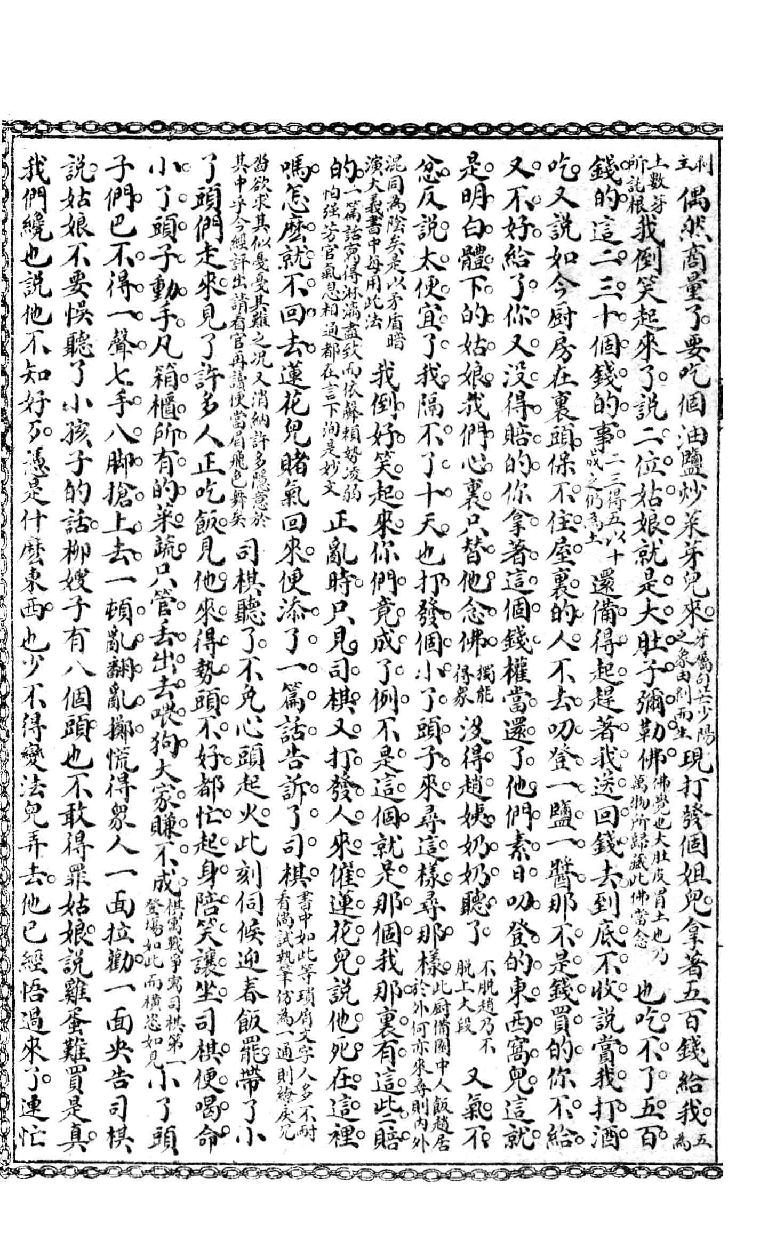 偶然商量了要吃個油鹽炒菜芽兒來芽屬句芒少陽之象由剝而生現打發個姐兒拿著五百錢給我五為
土數芽所託根我倒笑起來了說二位姑娘就是大肚子彌勒佛佛覺也大肚皮胃土也乃萬物所歸藏此佛當念也吃不了五百
錢的這二三十個錢的事二三得五以十成之仍為土還備得起趕著我送回錢去到底不收說賞我打酒
吃又說如今厨房在裏頭保不住屋裏的人不去叨登一鹽一醬那不是錢買的你不給
又不好給了你又沒得賠的你拿著這個錢權當還了他們素日叨登的東西窩兒這就
是明白體下的姑娘我們心裏只替他念佛獨能得衆沒得趙姨奶奶聽了不脫趙乃不脫上大段又氣不
忿反說太便宜了我隔不了十天也打發個小丫頭子來尋這樣尋那樣此厨備園中人飯趙居於外何亦來尋則内外
混同為陰矣是以矛盾暗演大義書中每用此法我倒好笑起來你們竟成了例不是這個就是那個我那裏有這些賠
的一篇話寫得淋漓盡致而依蘇賴勢凌弱怕强芳官氣息相通都在言下洵是妙文正亂時只見司棋又打發人來催蓮花兒說他死在這裡
嗎怎麽就不回去蓮花兒賭氣回來便添了一篇話告訴了司棋書中如此等瑣屑文字人多不耐看倘試執筆仿為一通則
當欲求其似戛戛其難之况又消納許多隱意於其中乎今經評出請看官再讀便當眉飛色舞矣司棋聽了不免心頭起火此刻伺候迎春飯罷帶了小
丫頭們走來見了許多人正吃飯見他來得勢頭不好都忙起身陪笑讓坐司棋便喝命
小丫頭子動手凡箱櫃所有的菜蔬只管丢出去喂狗大家賺不成棋寓戰爭寫司棋第一登場如此而横恣如見小丫頭
子們巴不得一聲七手八脚搶上去一頓亂翻亂擲慌得衆人一面拉勸一面央告司棋
說姑娘不要悞聽了小孩子的話柳嫂子有八個頭也不敢得罪姑娘說雞蛋難買是真
我們纔也說他不知好歹憑是什麽東西也少不得變法兒弄去他已經悟過來了連忙